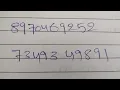 8970469252
73493 49891